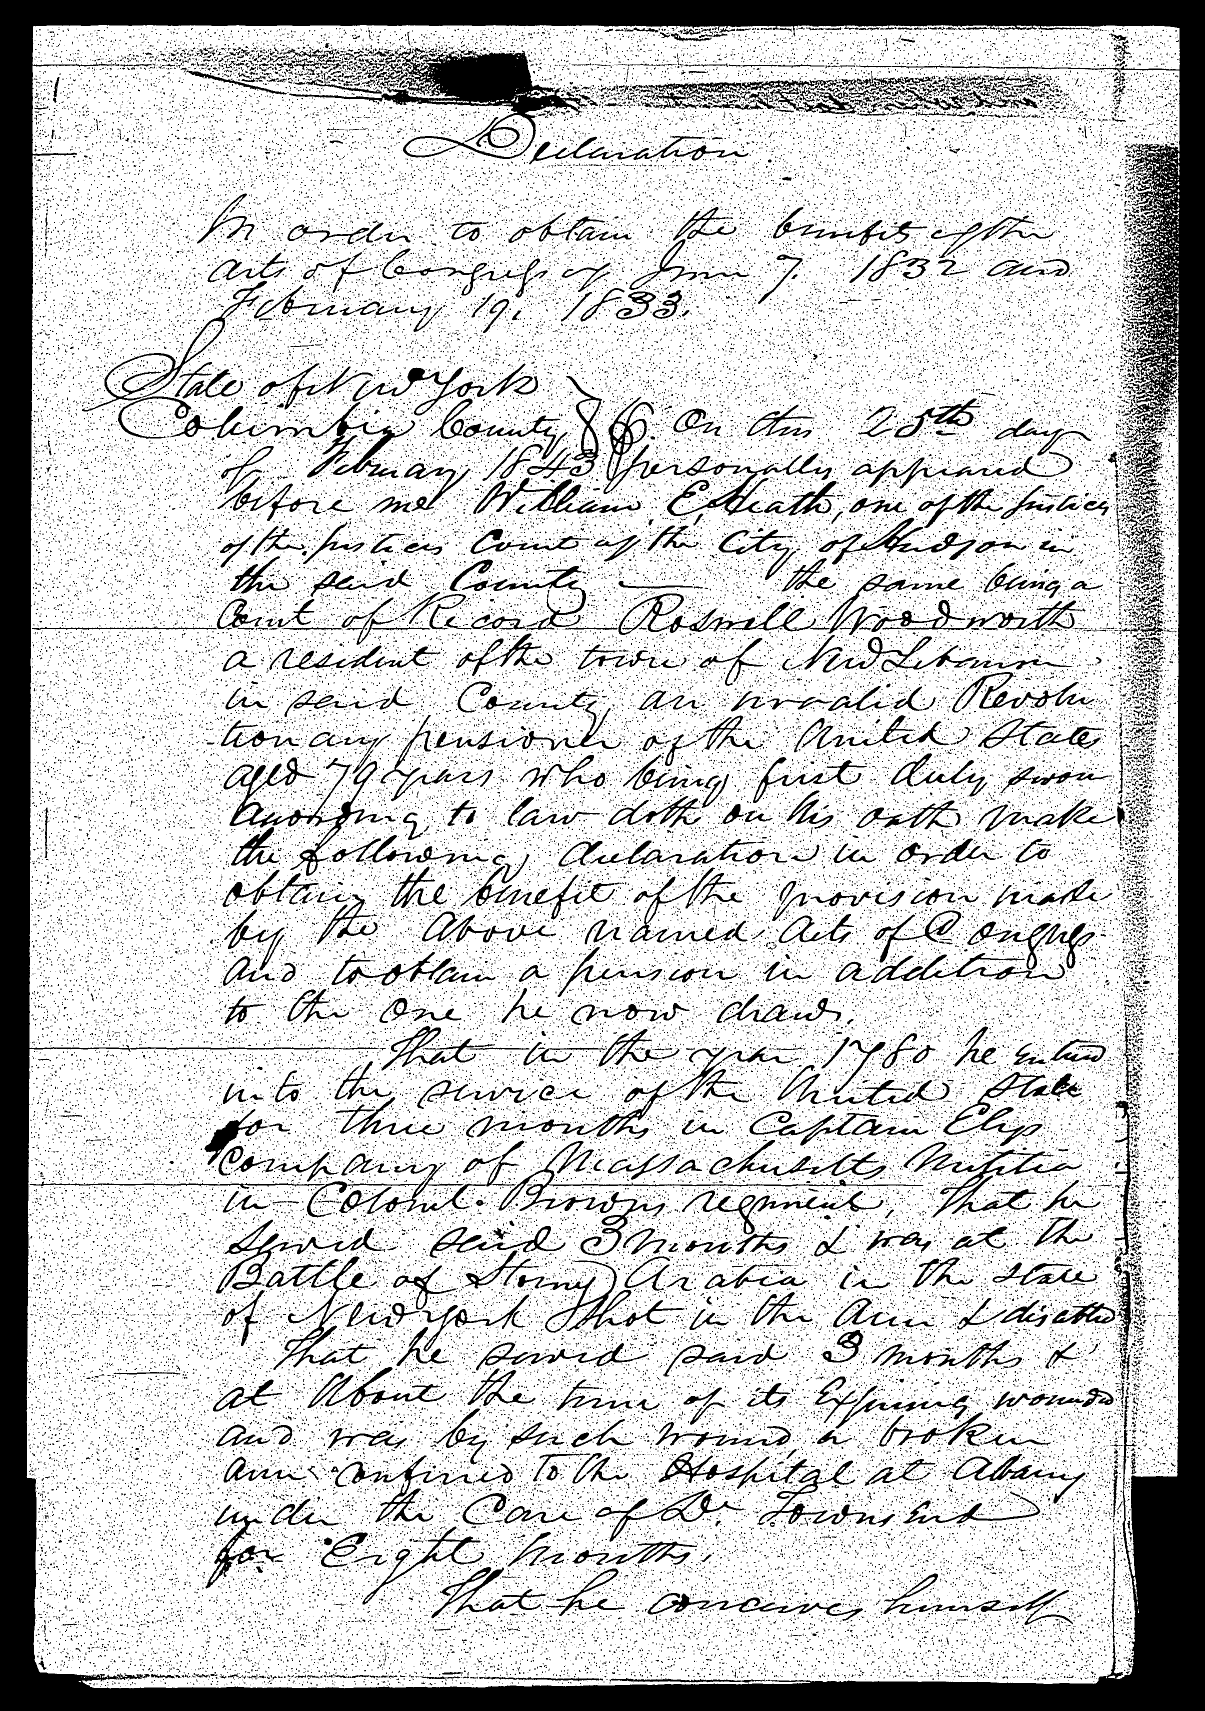 Declaration
In order to obtain the benefits of the
acts of Congress of June 7. 1832 and
February 19. 1833.
State of New York
Columbia County SS. On this 25th day
of February 1843 personally appeared
before me William E. Heath, one of the Justices
of the Justices Court of the City of Hudson in
the said County — the same being a
Court of Record Roswell Woodworth
a resident of the town of New Lebanon
in said County an invalid Revolu
-tionary pensioner of the United States
aged 79 years who being first duly sworn
according to law doth on his oath make
the following declaration in order to
obtain the benefit of the provision made
by the above named Acts of Congress
and to obtain a pension in addition
to the one he now draws.
That in the year 1780 he entered
into the service of the United State
for three months in Captain Elys
Company of Massachusetts Militia
in Colonel Browns regiment, That he
served said 3 months & was at the
Battle of Stoney Arabia in the State
of New York Shot in the arm & disabled
That he served said 3 months &
at about the time of its Expiring wounded
and was by such wound a broken
arm confined to the Hospital at Albany
under the Care of Dr. Townsend
for Eight months.
That he conceives himself